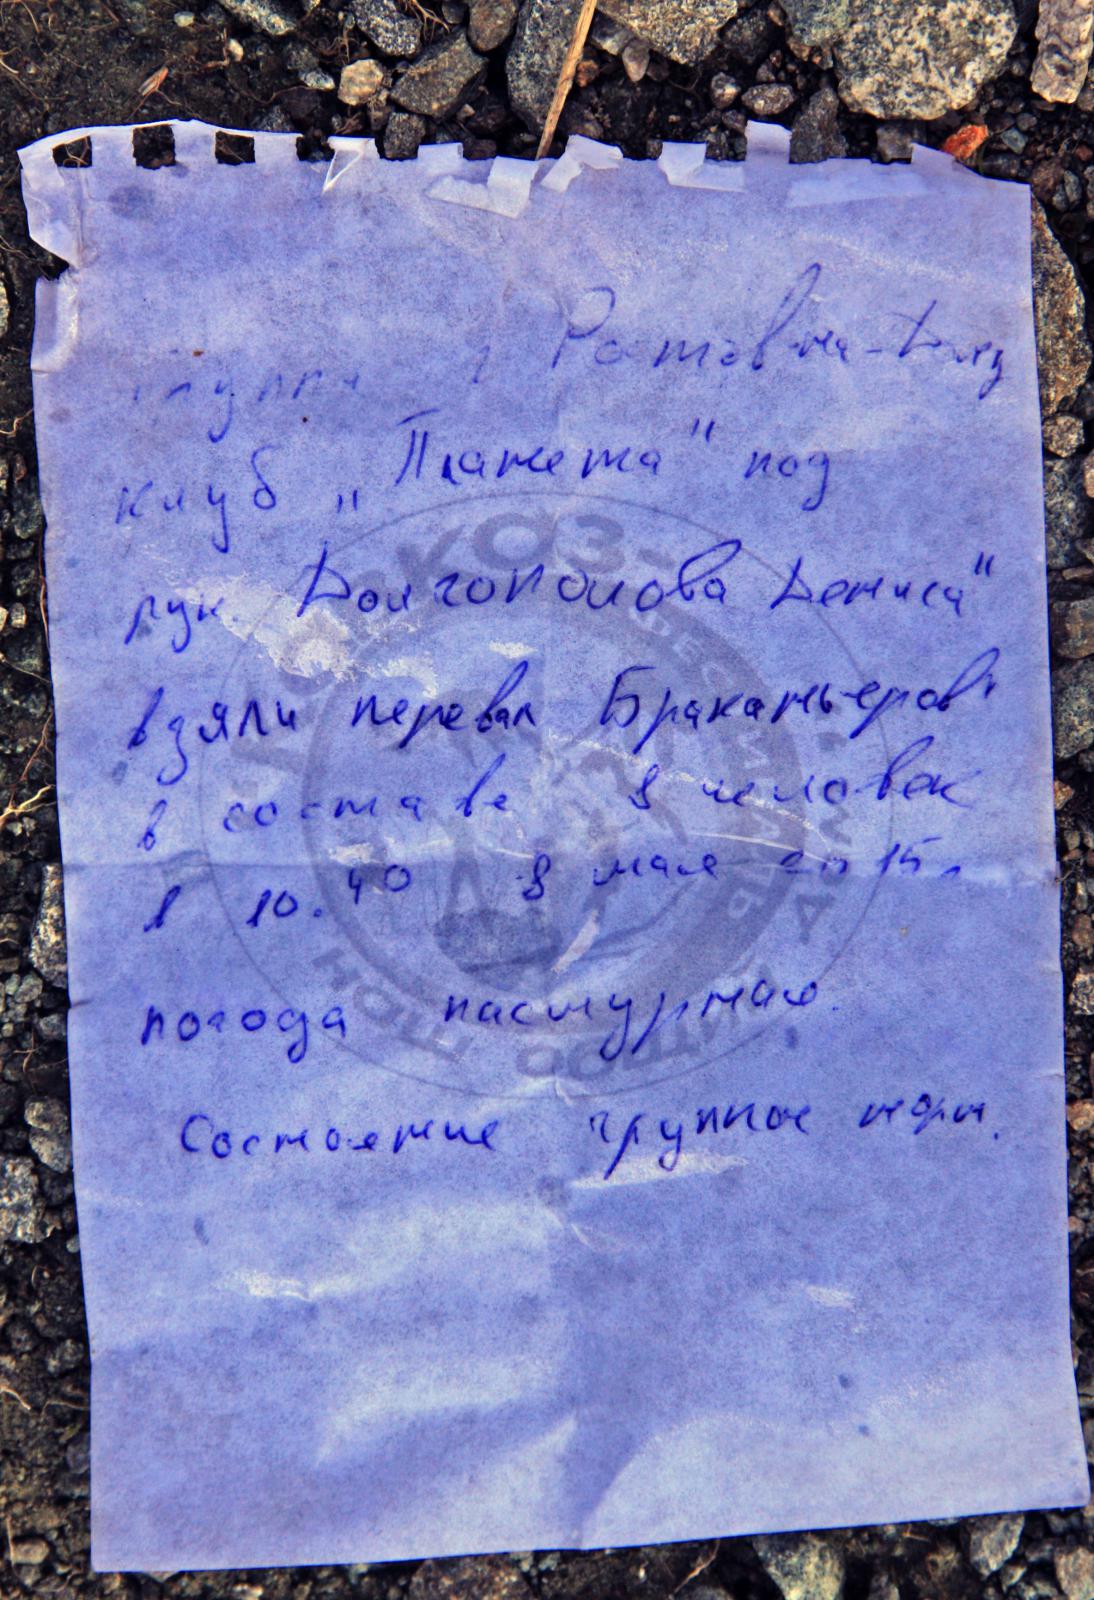 группа г Ростов-на-Дону
клуб „Планета" под
рук. Долгополова Дениса"
взяли перевал Бракамьеров
в составе 8 человек
в 10.40 8 мая 15
погода пасмурная.
Состояние группы норм.